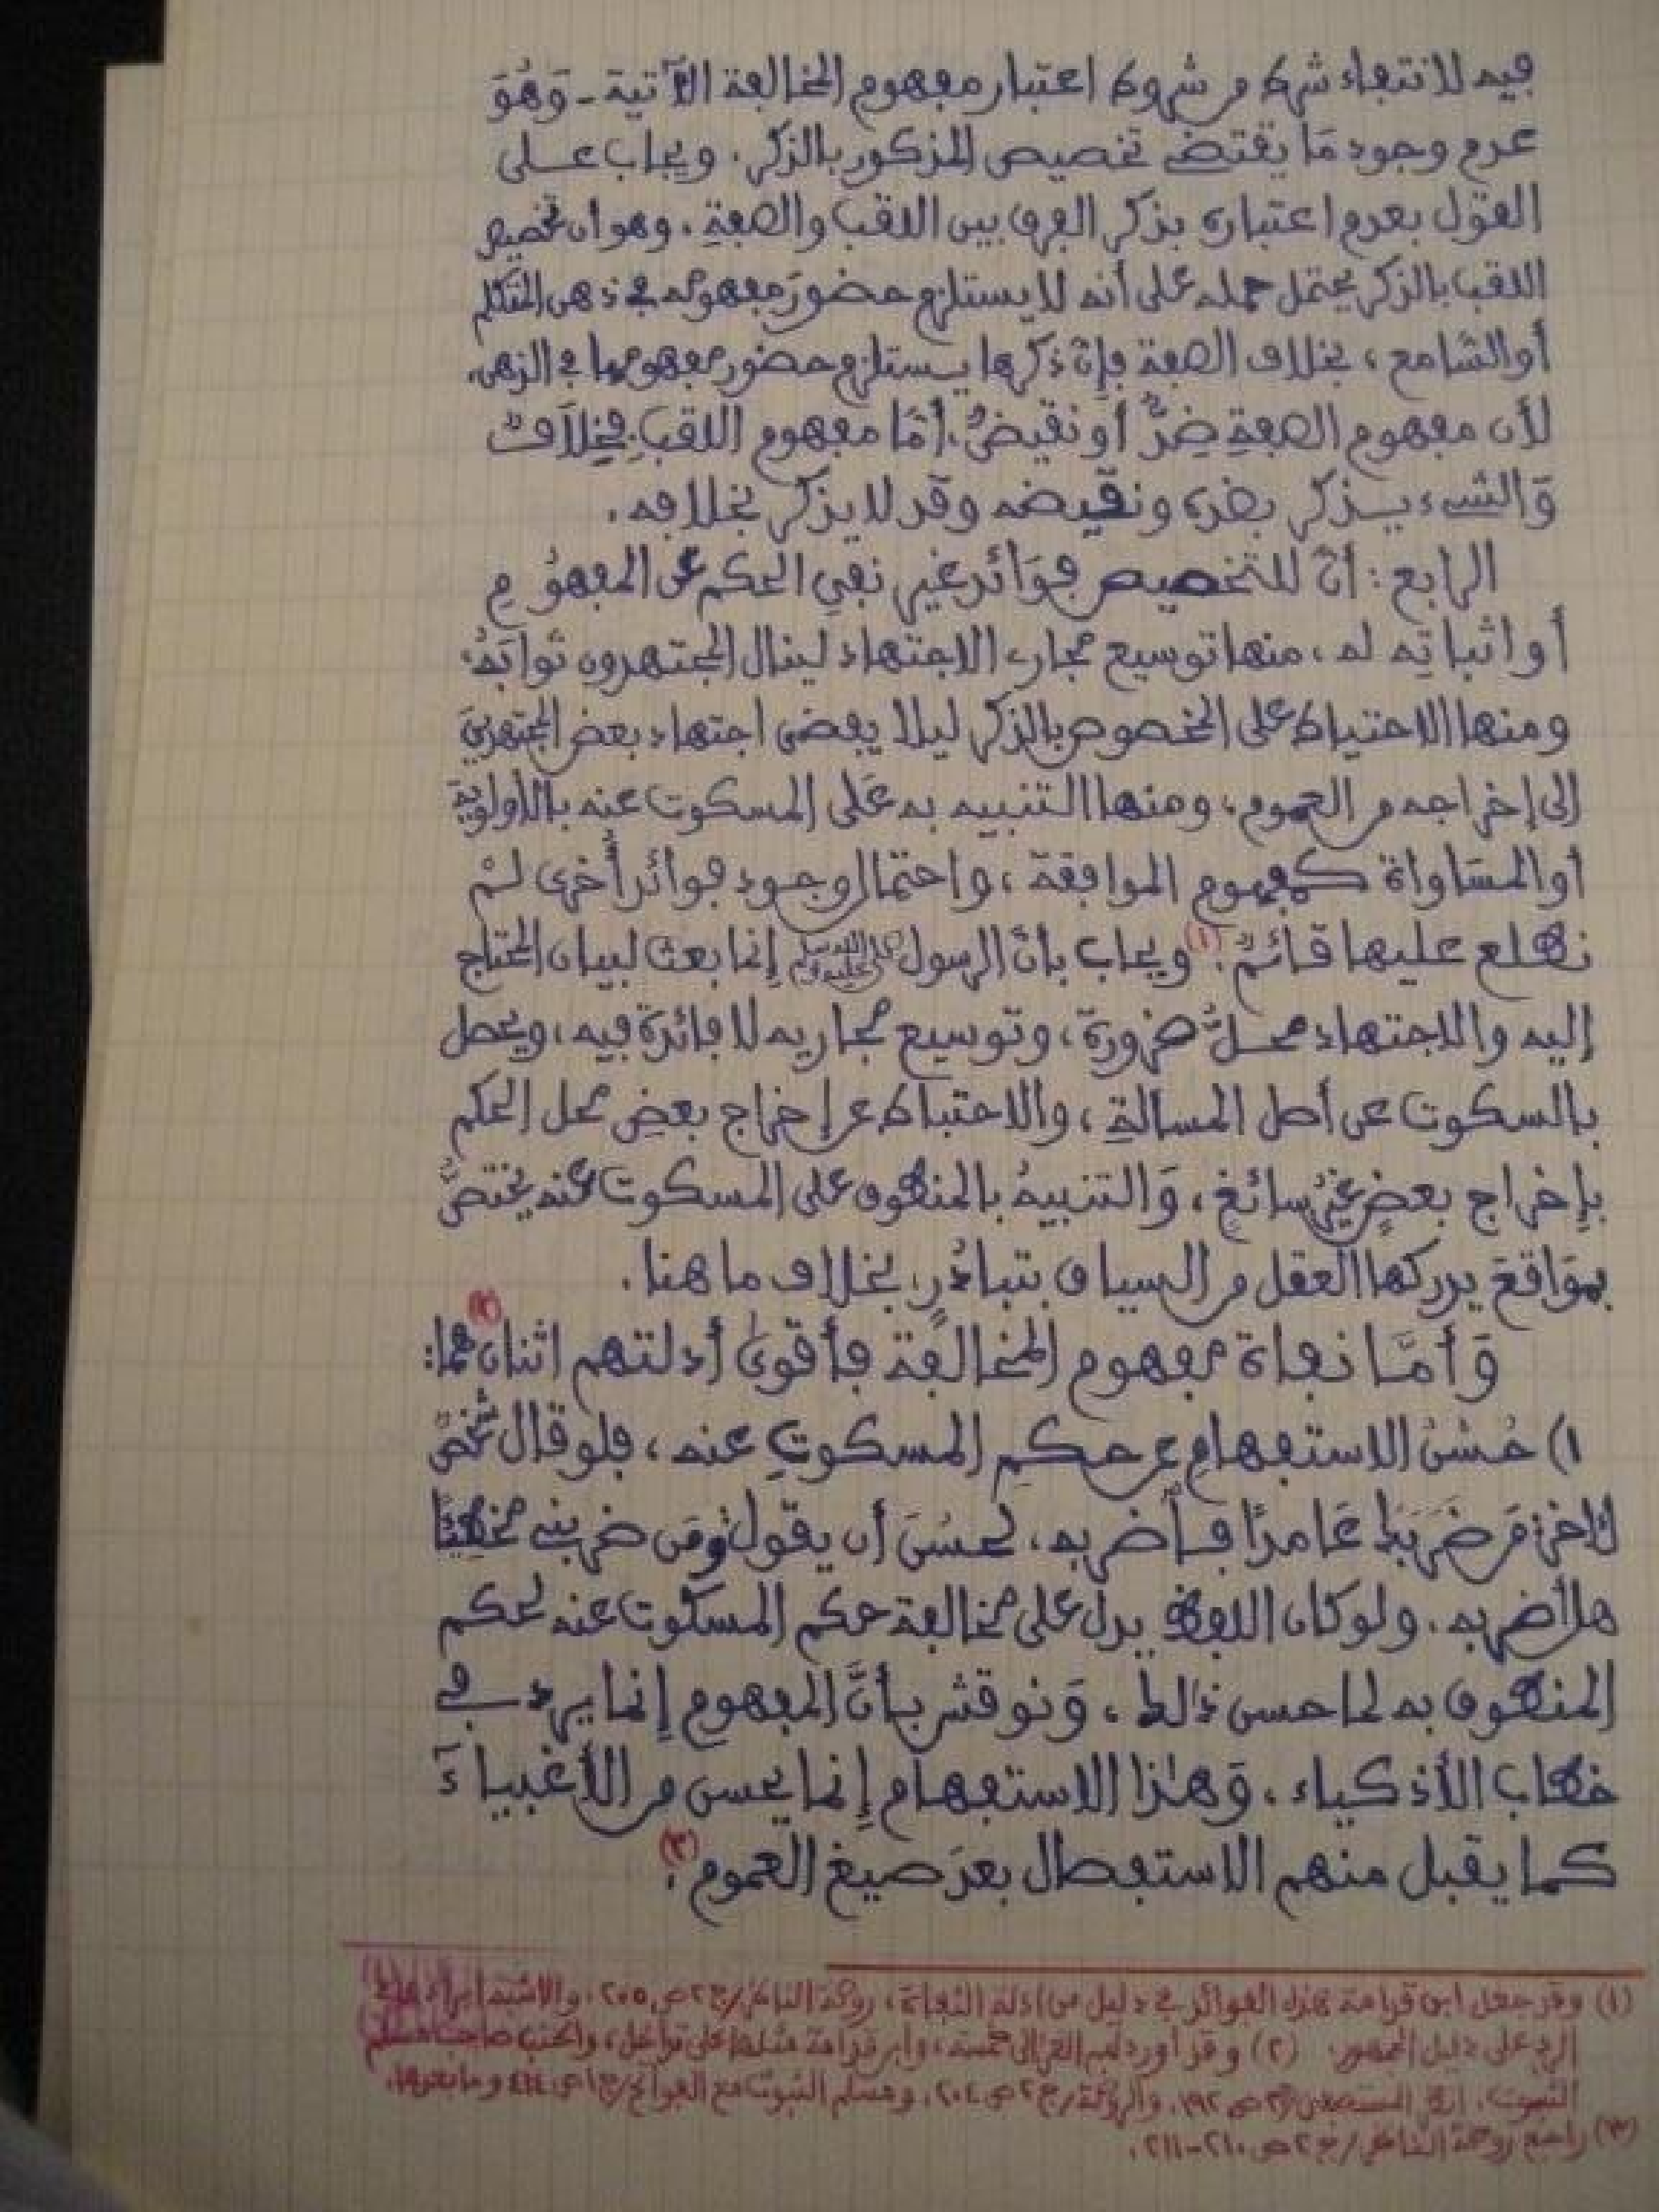 فيه لانتفاء شرط من شروط اعتبار مفهوم المخالفة الآتية - وَهُوَ
عدم وجود مَا يقتضي تخصيص المذكور بالذكر. ويجاب على
القول بعدم اعتباره بذكر الفرق بين اللقب والصفةِ، وهو أن تخصيص
اللقب بالذكر يحتمل حمله على أنه لا يستلزم حضورَ مفهومه في ذهن المتكلم
أو السَّامع، بخلاف الصفة فإنَّ ذكرها يستلزم حضور مفهومها في الذهن،
لأن مفهوم الصفةِ ضِدٌّ أو نقيضٌ، أمَّا مفهوم اللقبِ فخِلَافٌ
وَالشيء يذكر بضده ونقيضه وقد لا يذكر بخلافه.
الرابع: أنَّ للتخصيص فوَائد غير نفيِ الحكم عن المفهُومِ
أو اثباتِه له، منها توسيع مجاري الاجتهاد لينال المجتهدون ثوابَهُ،
ومنها الاحتياط على المخصوص بالذكر ليلا يفضي اجتهاد بعض المجتهدين
إلى إخراجه من العموم، ومنها التنبيه به عَلى المسكوت عنه بالأولوية
أو المسَاواة كمفهوم الموافقة، واحتمال وجود فوائد أُخرى لمْ
نطلع عليها قائمٌ.(١) ويجاب بأنَّ الرسول صلى الله عليه وسلم إنما بعث لبيان المحتاج
إليه والاجتهاد محلُّ ضرورة، وتوسيع مجاريه لا فائدة فيه، ويحصل
بالسكوت عن أصل المسالةِ، والاحتياط عن إخراج بعضِ محل الحكم
بإخراج بعضٍ غيرُ سائغٍ، وَالتنبيهُ بالمنطوق على المسكوت عنه يختصُّ
بموَاقعَ يدركها العقل من السياق بتبادُرٍ، بخلاف ما هنا.
وَأمَّا نفاة مفهوم المخالفة فأقوى أدلتهم اثنان(٢) هما:
١) حُسْنُ الاستفهامِ عن حكمِ المسكوتِ عنه، فلو قال شخصٌ
لآخر: مَن ضَرَبَكَ عَامدًا فَاضربه، لحسُنَ أن يقول: ومَن ضربني مخطِئًا
هل أضربه، ولو كان اللفظ يدل على مخالفة حكم المسكوت عنه لحكم
المنطوق به لما حسن ذلك، وَنوقش بأنَّ المفهوم إنما يرد في
خطاب الأذكياء، وَهٰذا الاستفهام إنما يحسن من الأغبياءَ
كما يقبل منهم الاستفصال بعدَ صيغ العموم.(٣)
(١) وقد جعل ابن قدامة هذه الفوائد في دليل من أدلة النفاة، روضة الناظر/ج٢ ص٢٠٥، والأشبه إيرادها في
الرد على دليل الجمهور. (٢) وقد أورد لهم الغزالي خمسة، وابن قدامة مثلها على تداخل،
الثبوت. المستصفى/ج٢ ص١٩٢، والروضة/ج٢ ص٢٠٤، ومسلم الثبوت مع الفواتح/ج١ ص٤١٤ وما بعدها.
(٣) راجع روضة الناظر/ج٢ ص٢١٠-٢١١.